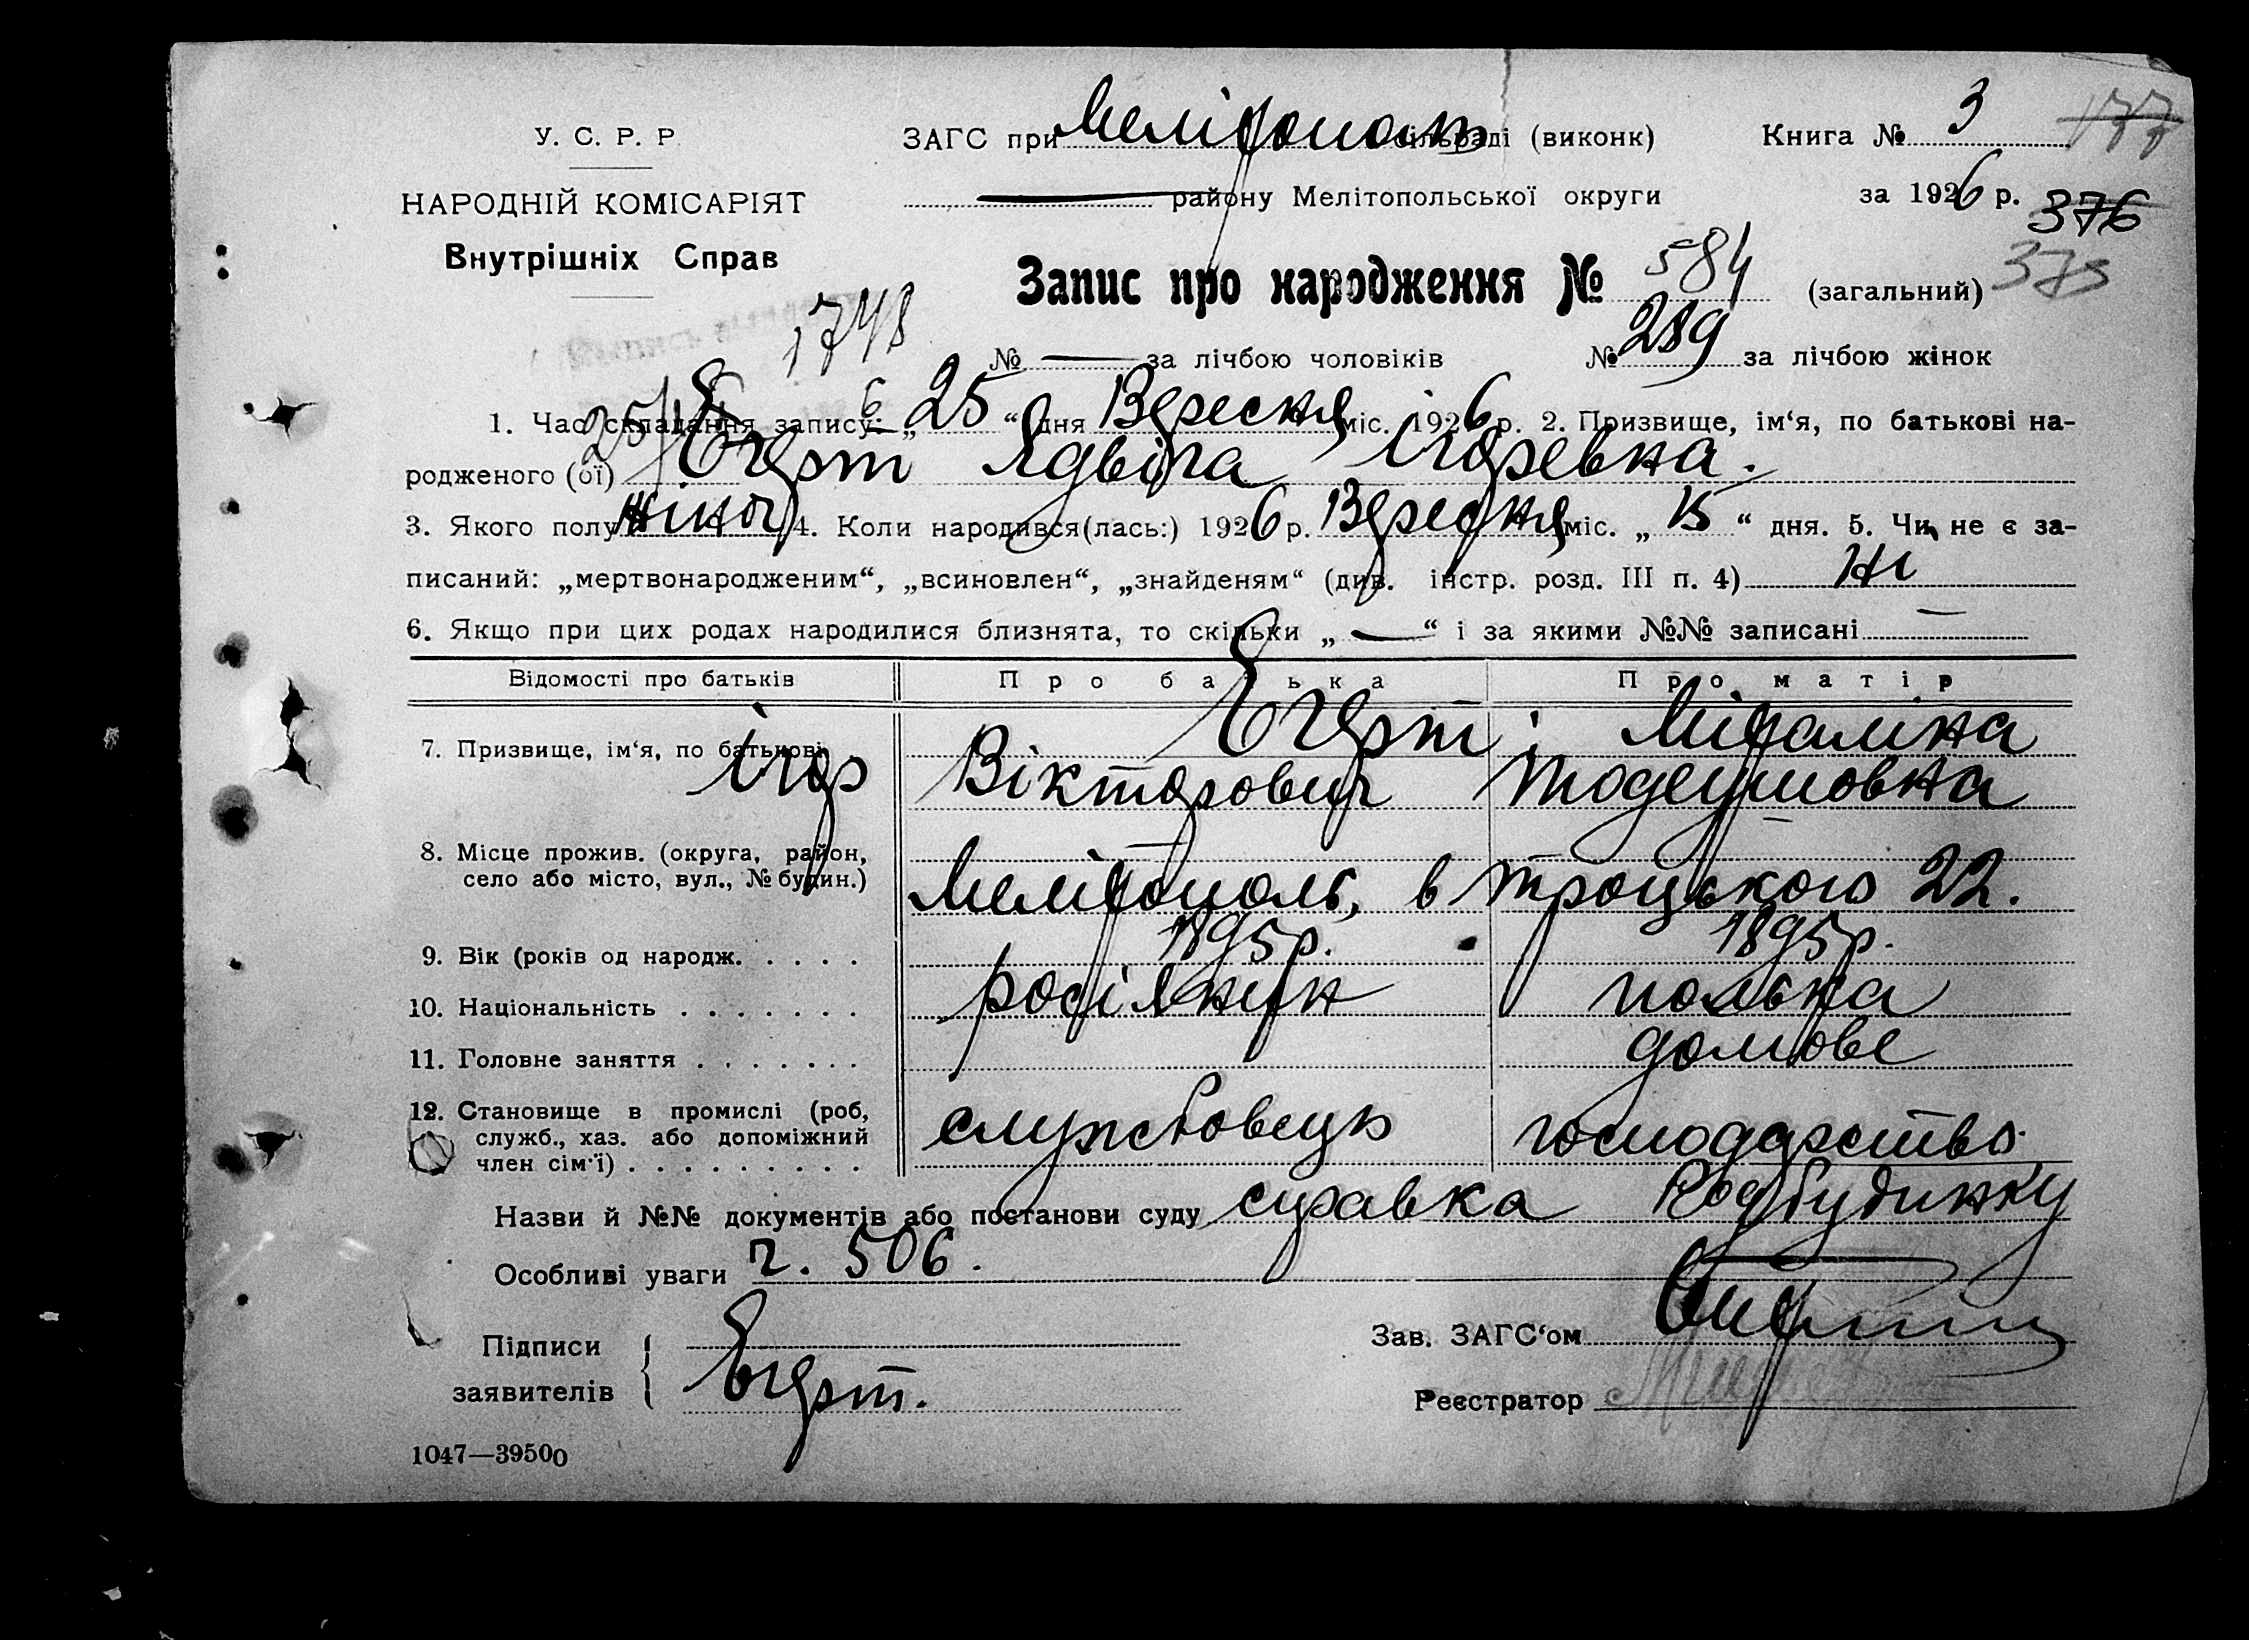 У. С. Р. Р.
НАРОДНІЙ КОМІСАРІЯТ
Внутрішніх Справ
ЗАГС при Мелітопол сільраді (виконк)
району Мелітопольської округи
Книга № 3
177
за 1926 р.
376
375
Запис про народження № 584 (загальний)
1748
№ — за лічбою чоловіків № 289 за лічбою жінок
1. Час складання запису: „25“ дня Вересня міс. 1926 р. 2. Призвище, ім‘я, по батькові на-
родженого (ої) Егерт Ядвіга Ігоревна.
3. Якого полу жіноч 4. Коли народився(лась:) 1926 р. Вересня міс. „15“ дня. 5. Чи не є за-
писаний: „мертвонародженим“, „всиновлен“, „знайденям“ (див. інстр. розд. III п. 4) Ні
6. Якщо при цих родах народилися близнята, то скільки „—“ і за якими №№ записані —
Відомості про батьків Про батька Про матір
7. Призвище, ім‘я, по батькові Егерт і
Ігор Вікторович Тодеушовна
8. Місце прожив. (округа, район,
село або місто, вул., № будин.) Мелітополь, в Троцького 22.
9. Вік (років од народж. . . . . 1895р. 1895р.
10. Національність . . . . . . . росіянин полька
11. Головне заняття . . . . . . . домове
12. Становище в промислі (роб,
служб., хаз. або допоміжний
член сім‘ї) . . . . . . . . . службовець господарство
Назви й №№ документів або постанови суду справка Родбудинку
Особливі уваги ч. 506.
Підписи
заявителів Егерт.
Зав. ЗАГС‘ом
Реєстратор
1047—39500